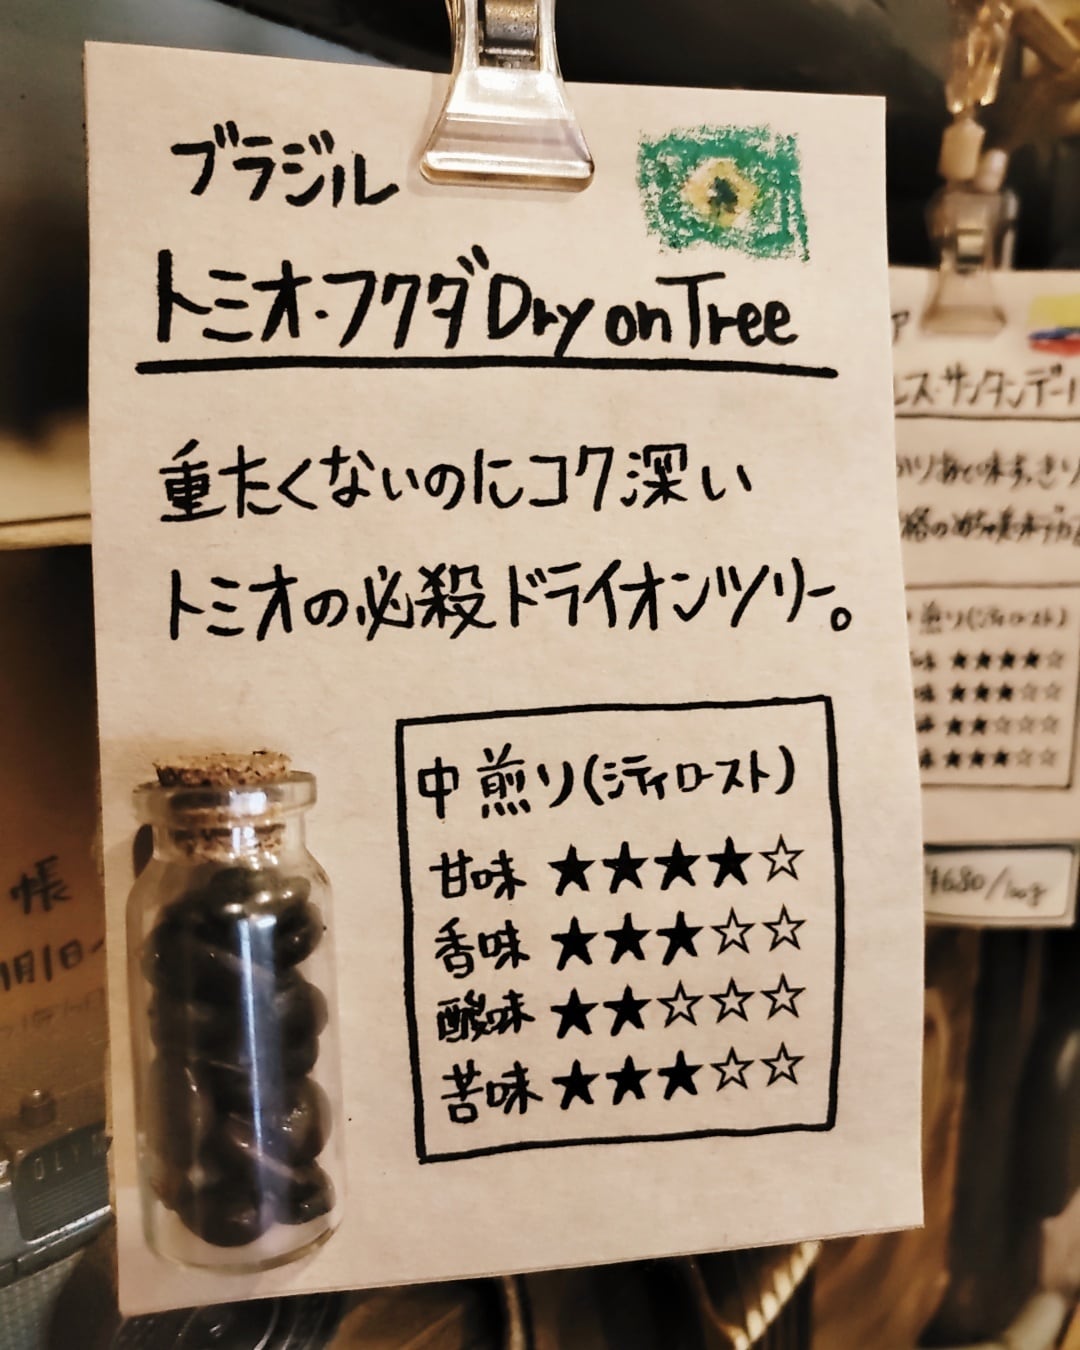 ブラジル
トミオ・フクダDry on Tree
重たくないのにコク深い
トミオの必殺ドライオンツリー。
中煎り(シティロースト)
甘味 ★★★★☆
香味 ★★★☆☆
酸味 ★★☆☆☆
苦味 ★★★☆☆
ス・サンタンデール
煎り(シティロースト)
味 ★★★★☆
味 ★★★☆☆
味 ★★☆☆☆
味 ★★★☆☆
¥680/100g
帳
月1日